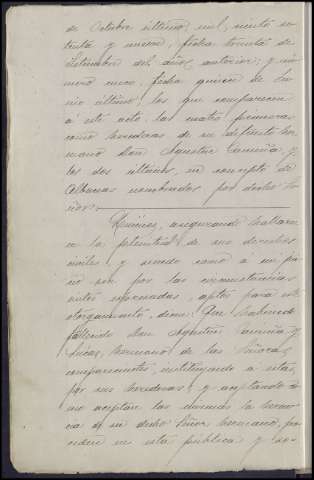 de Octubre último, mil ciento se-
tenta y nueve, fecha treinta de
Setiembre del año anterior; y nú-
mero once, fecha quince de Ju-
nio último los que comparecen
á este acto, las cuatro primeras
como herederas de su difunto her-
mano Don Agustin y
los dos últimos, en concepto de
Albaceas nombrados por dicho Se-
ñor.
Quienes, asegurando hallarse
en la plenitud de sus derechos
civiles y siendo como á mi jui-
cio son por las circunstancias
antes espresadas, aptos para este
otorgamiento, dicen: Que habiendo
fallecido Don Agustin y
Lucas, hermano de las Señoras
comparecientes, instituyendo á estas
por sus herederas, y aceptando co-
mo aceptan las mismas la heren-
cia de su dicho Señor hermano, pro-
ceden en esta pública y so-